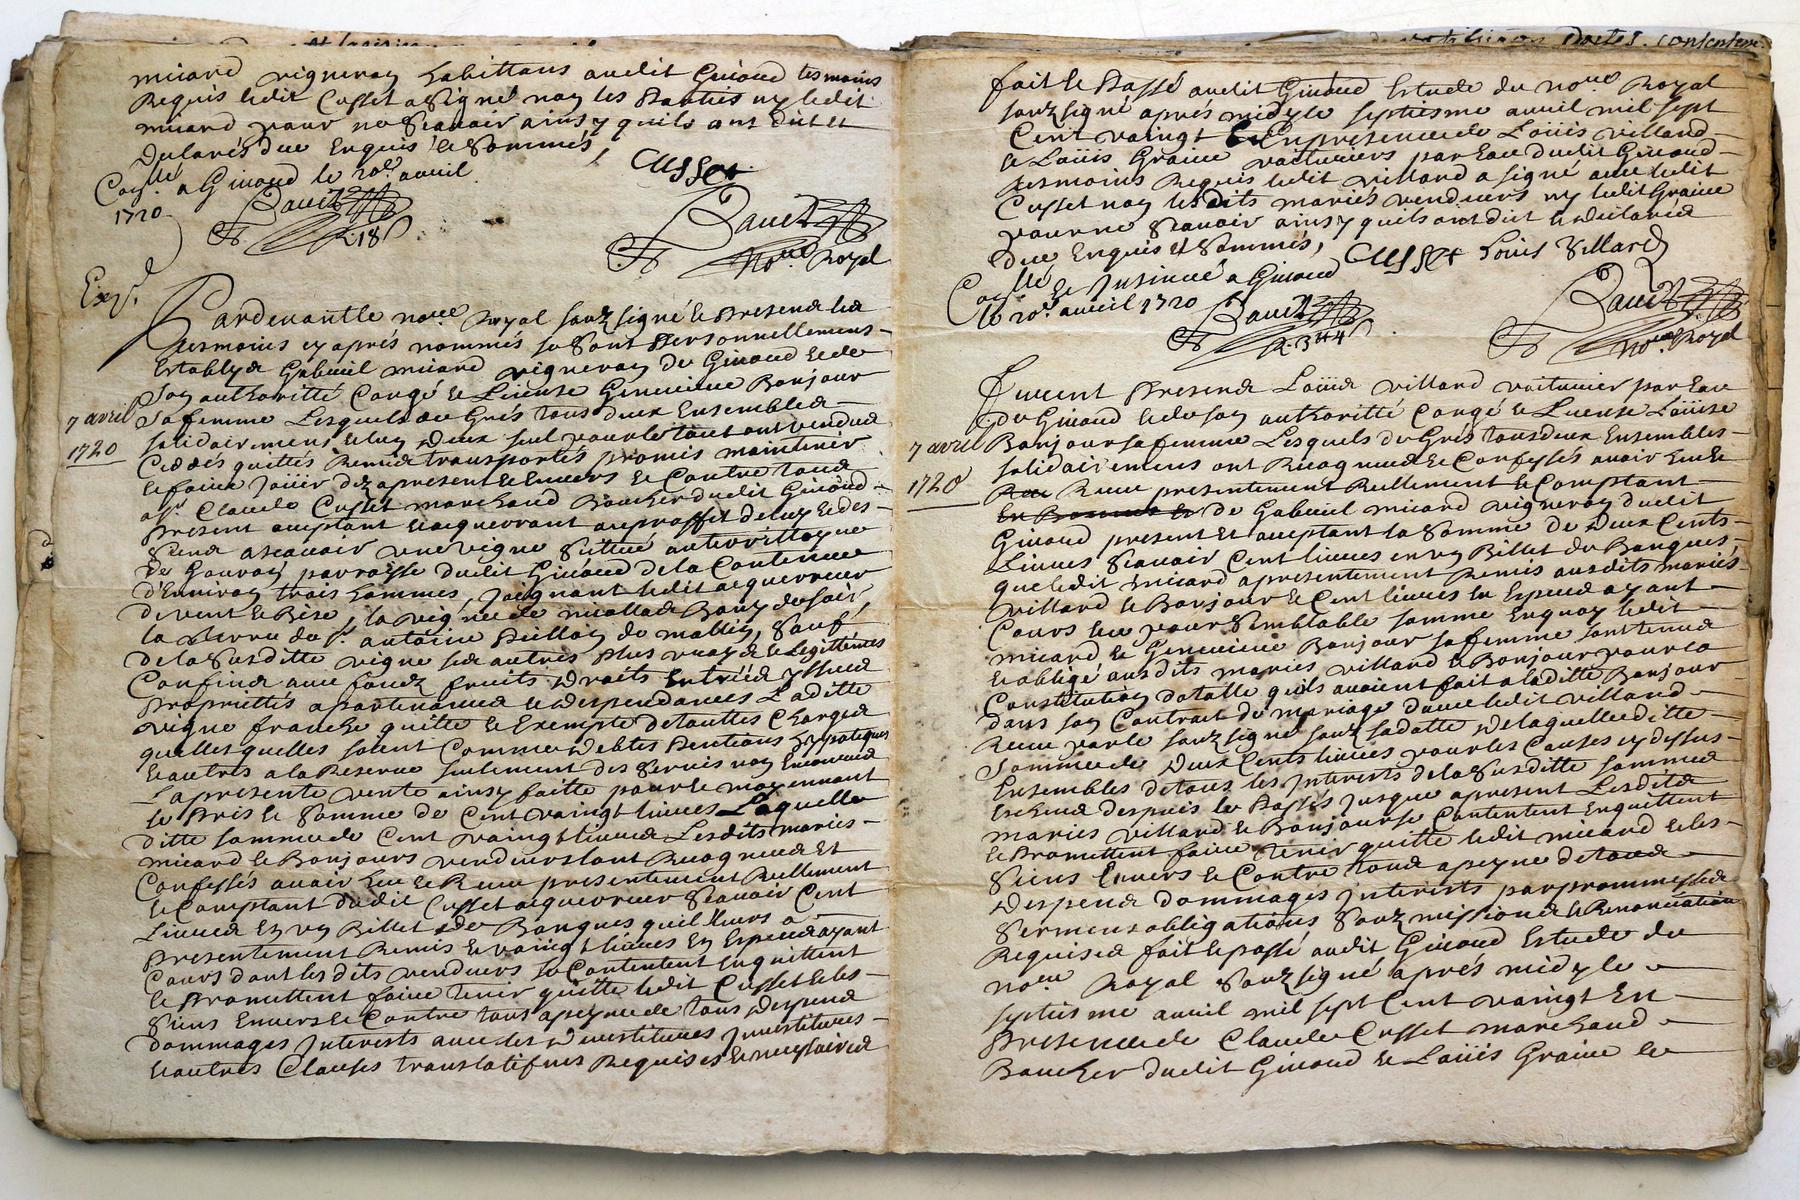 micard vigneron habittans audit Givord tesmoins
Requis ledit Cusset a Signé non les Parties ny ledit
micard pour ne Scavoir ainsy quils ont dit et
declarés due Enquis et Sommés,
Cusset
Con.llé a Givord le 20.e avril
1720
R 18 s
No.re Royal
Exp.é
Pardevant le no.re Royal souz signé et Presend les
tesmoins cy aprés nommés se sont Personnellement
Establyes Gabriel micard vigneron de Givord et de
Son authoritté Congé et License Genevieve Bonjour
7 avril
1720
Sa femme Lesquels de Grés tous deux Ensembles
solidairement et lun deux seul pour le tout ont vendus
Ceddés quittés Remis transportés promis maintenir
et faire Joüir dez apresent et Envers et Contre tous
a S.r Claude Cusset marchand Boucher dudit Givord
Present acceptant et acquerrant au proffit de luy et des
Siens ascavoir une vigne Scituée au territtoyre
de Gouray parroisse dudit Givord de la Contenue
d'Environ trois hommes, Joignant ledit acquerreur
de vent et Bize, la vigne de de soir,
la terre de S.r antoine de sauf
de la Susditte vigne ses autres Plus vrays et Legittimes
Confins avec fondz fruits droits Entrées yssues
Propriettés apartenances et despendances Laditte
vigne franche quitte et Exempte de touttes Charges
quelles quelles soient Comme debtes Pentions hypoteques
et autres a la Reserve seulement des Servis non Encourus
La presente vente ainsy faitte pour et moyennant
le Pris et Somme de Cent vaingt livres Laquelle
ditte somme de Cent vaingt livres Lesdits mariés
micard et Bonjours vendeurs ont Recognus et
Confessés avoir heu et Receu presentement Reellement
et Comptant dudit Cusset acquerreur Scavoir Cent
Livres En un Billet de Banques quil leurs a
presentement Remis et vaingt livres En Especes ayant
Cours dont lesdits vendeurs se Contentent Enquittent
et Promettent faire tenir quitte ledit Cusset et les
Siens Envers et Contre tous apeyne de tous despens
dommages Interests avec les devestitures Investitures
et autres Clauses translatifves Requises et necessaires
fait et Passé audit Givord Estude du no.re Royal
souz signé aprés midy le septiesme avril mil sept
Cent vaingt En presence de Loüis villard
et Loüis Graine voituriers par Eau dudit Givord
tesmoins Requis ledit villard a signé avec ledit
Cusset non lesdits mariés vendeurs ny ledit Graine
pour ne Scavoir ainsy quils ont dit et déclarés
due Enquis et Sommés,
Cusset Louis Villard
Con.llé et Insinué a Givord
le 20.e avril 1720
No.re Royal
Furent Presens Loüis villard voiturier par Eau
de Givord et de son authoritté Congé et License Loüise
7 avril
1720
Bonjour sa femme Lesquels de Grés tous deux Ensembles
solidairement ont Recognus et Confessés avoir heu et
Receu presentement Reellement et Comptant
de Gabriel micard vigneron dudit
Givord present et acceptant la Somme de deux Cents
Livres Scavoir Cent livres en un Billet de Banques
que ledit micard a presentement Remis ausdits mariés
villard et Bonjour et Cent livres En Especes ayant
Cours le pour Semblable somme Enquoy ledit
micard et Genevieve Bonjour sa femme sont tenus
et obligé ausdits mariés villard et Bonjour pour la
Constitution dotalle quils avoient fait a laditte Bonjour
dans son Contrat de mariage d'avec ledit villard
Receu par le souz signé souz sa datte de laquelle ditte
Somme de deux Cents livres pour les Causes cy dessus
Ensembles de tous les Interests de la Susditte sommes
Escheus despuis le Passé Jusque apresent Lesdits
mariés villard et Bonjour se Contentent Enquittent
et Promettent faire tenir quitte ledit micard et les
Siens Envers et Contre tous apeyne de tous
despens dommages Interests par prommesses
Serment obligations Souz missions et Renonciation
Requises fait et passé audit Givord Estude du
no.re Royal Souz signé aprés midy le
septiesme avril mil sept Cent vaingt En
Presence de Claude Cusset marchand
Boucher dudit Givord et Loüis Graine le